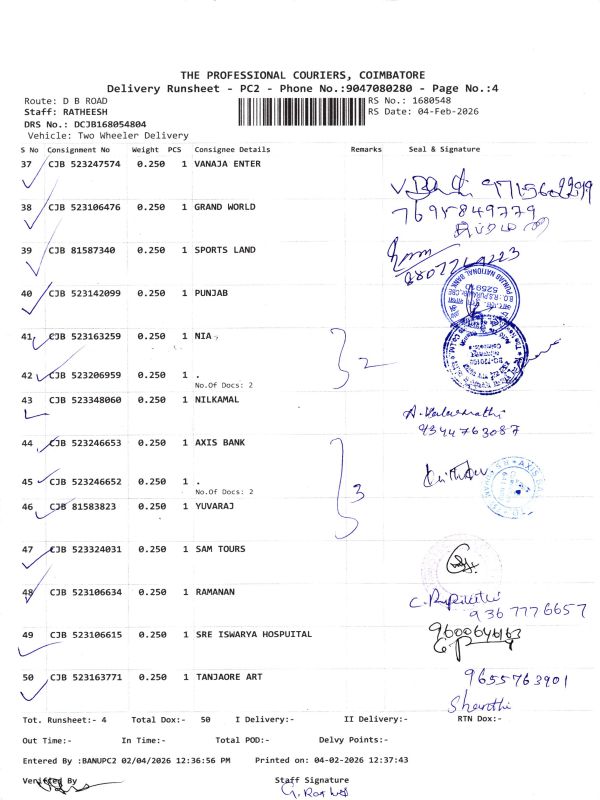 THE PROFESSIONAL COURIERS, COIMBATORE
Delivery Runsheet - PC2 - Phone No.:9047080280 - Page No.:4
Route: D B ROAD RS No.: 1680548
Staff: RATHEESH RS Date: 04-Feb-2026
DRS No.: DCJB168054804
Vehicle: Two Wheeler Delivery
S No Consignment No Weight PCS Consignee Details Remarks Seal & Signature
37 CJB 523247574 0.250 1 VANAJA ENTER
38 CJB 523106476 0.250 1 GRAND WORLD
7695849779
39 CJB 81587340 0.250 1 SPORTS LAND
40 CJB 523142099 0.250 1 PUNJAB
PUNJAB NATIONAL BANK
41 CJB 523163259 0.250 1 NIA
2
42 CJB 523206959 0.250 1 .
No.Of Docs: 2
43 CJB 523348060 0.250 1 NILKAMAL
9344763087
44 CJB 523246653 0.250 1 AXIS BANK
AXIS BANK
45 CJB 523246652 0.250 1 .
No.Of Docs: 2
3
46 CJB 81583823 0.250 1 YUVARAJ
47 CJB 523324031 0.250 1 SAM TOURS
48 CJB 523106634 0.250 1 RAMANAN
9367776657
49 CJB 523106615 0.250 1 SRE ISWARYA HOSPUITAL
9600646163
50 CJB 523163771 0.250 1 TANJAORE ART
9655763901
Tot. Runsheet:- 4 Total Dox:- 50 I Delivery:- II Delivery:- RTN Dox:-
Out Time:- In Time:- Total POD:- Delvy Points:-
Entered By :BANUPC2 02/04/2026 12:36:56 PM Printed on: 04-02-2026 12:37:43
Verified By Staff Signature